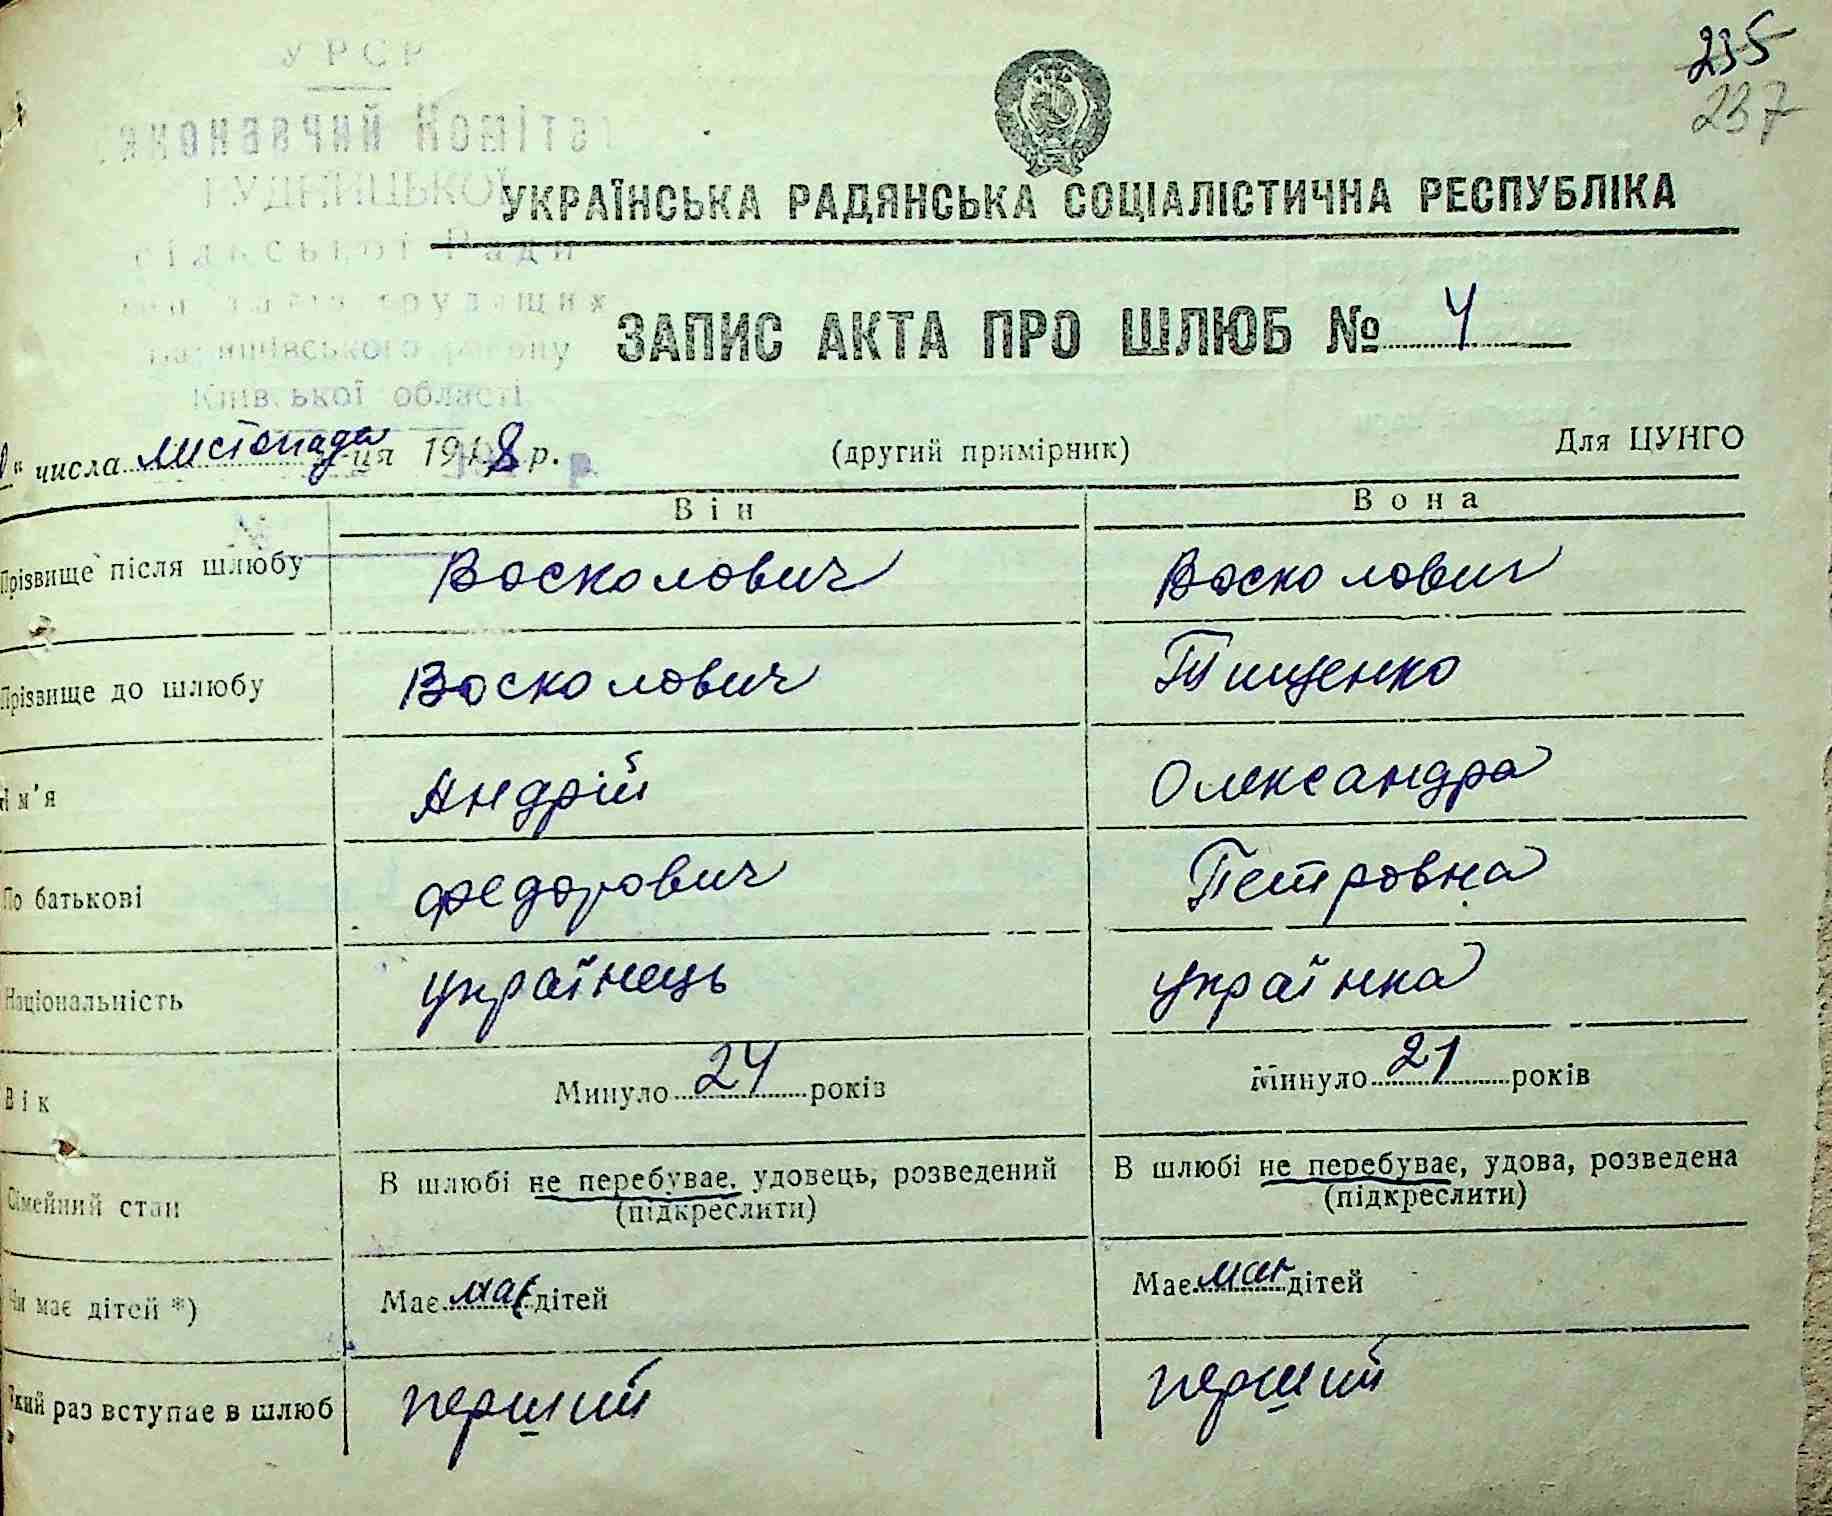 235
237
УРСР
Виконавчий Комітет
ГУДНИЦЬКОЇ
сільської Ради
УКРАЇНСЬКА РАДЯНСЬКА СОЦІАЛІСТИЧНА РЕСПУБЛІКА
трудящих
району
ЗАПИС АКТА ПРО ШЛЮБ № 4
Київської області
" числа листопада ця 1948 р.
(другий примірник)
Для ЦУНГО
Він Вона
Прізвище після шлюбу Восколович Восколович
Прізвище до шлюбу Восколович Тищенко
Ім'я Андрій Олександра
По батькові Федорович Петровна
Національність українець українка
Вік Минуло 24 років Минуло 21 років
Сімейний стан В шлюбі не перебуває, удовець, розведений В шлюбі не перебуває, удова, розведена
(підкреслити) (підкреслити)
Чи має дітей *) Має має дітей Має має дітей
Який раз вступає в шлюб перший перший